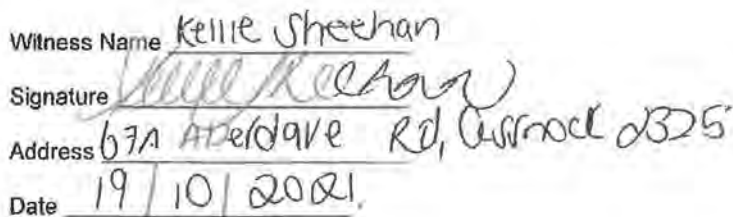 Witness Name Kellie Sheehan
Signature
Address 67A Aberdare Rd, Cessnock 2325
Date 19/10/2021.